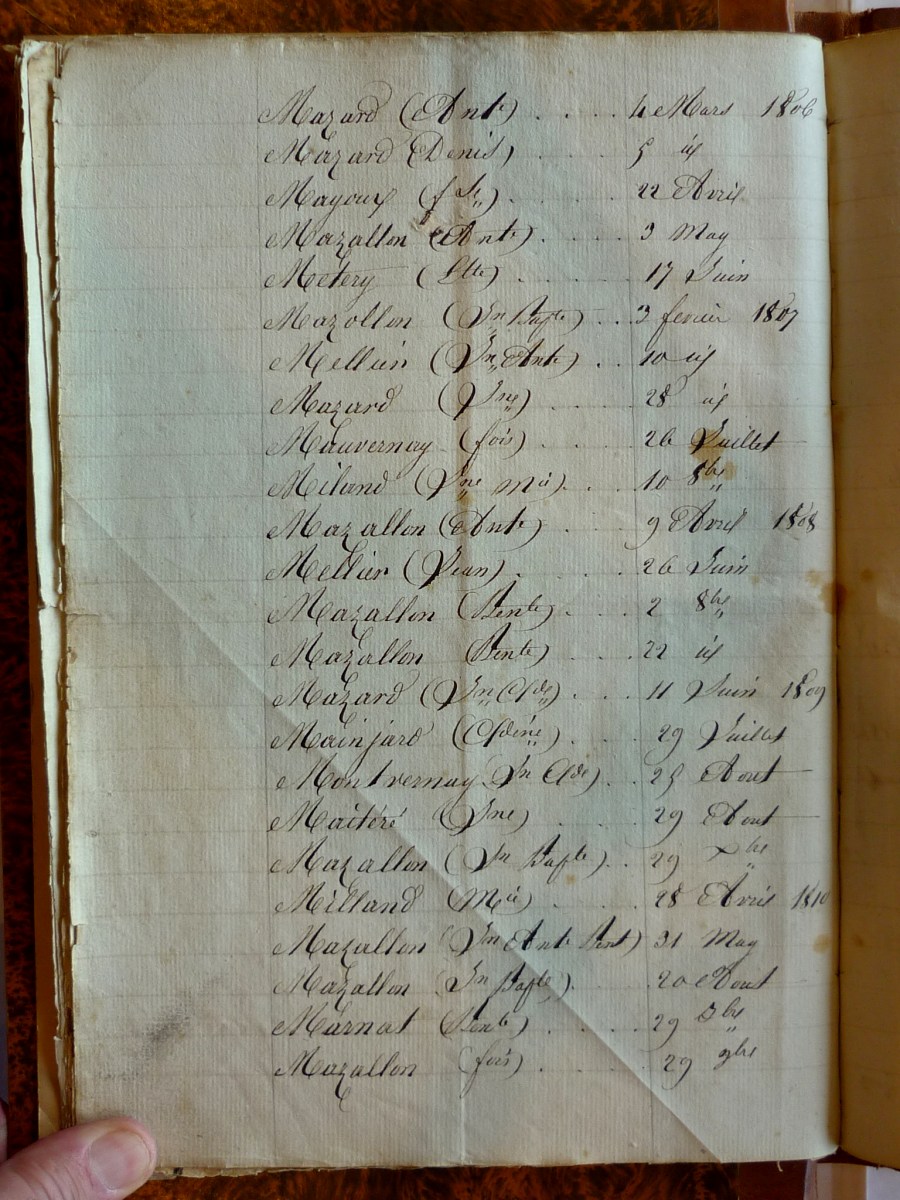 Mazard (Ante) . . . . 4 Mars 1806
Mazard (Denis) . . . 5 id
Mayoux . . . 22 Avril
Mazallon (Ante) . . . . 3 May
Metery (Ltte) . . . . 17 Juin
Mazollon (Jn Bapte) . . . 3 fevrier 1807
Mellier (Jn Ante) . . 10 id
Mazard (Jne) . . . . 28 id
Mauvernay (fois) . . . . 26 Juillet
Miland (Jne Mie) . . 10 8bre
Mazallon (Ante) . . . 9 Avril 1808
Mellier (Jean) . . . . 26 Juin
Mazallon (Bente) . . . 2 8bre
Mazallon (Bente) . . . 22 id
Mazard (Jn Clde) . . . 11 Juin 1809
Mainjard (Cldine) . . . 29 Juillet
Montvernay (Jn Clde) . . 25 Aout
Maitéré (Jne) . . . . 29 Aout
Mazallon (Jn Bapte) . . 29 Xbre
Milland (Mie) . . . . 28 Avril 1810
Mazallon (Jn Ante Bent) 31 May
Mazallon (Jn Bapte) . . . 20 Aout
Marnat (Bente) . . . . 29
Mazallon (fois) . . . . 29 9bre